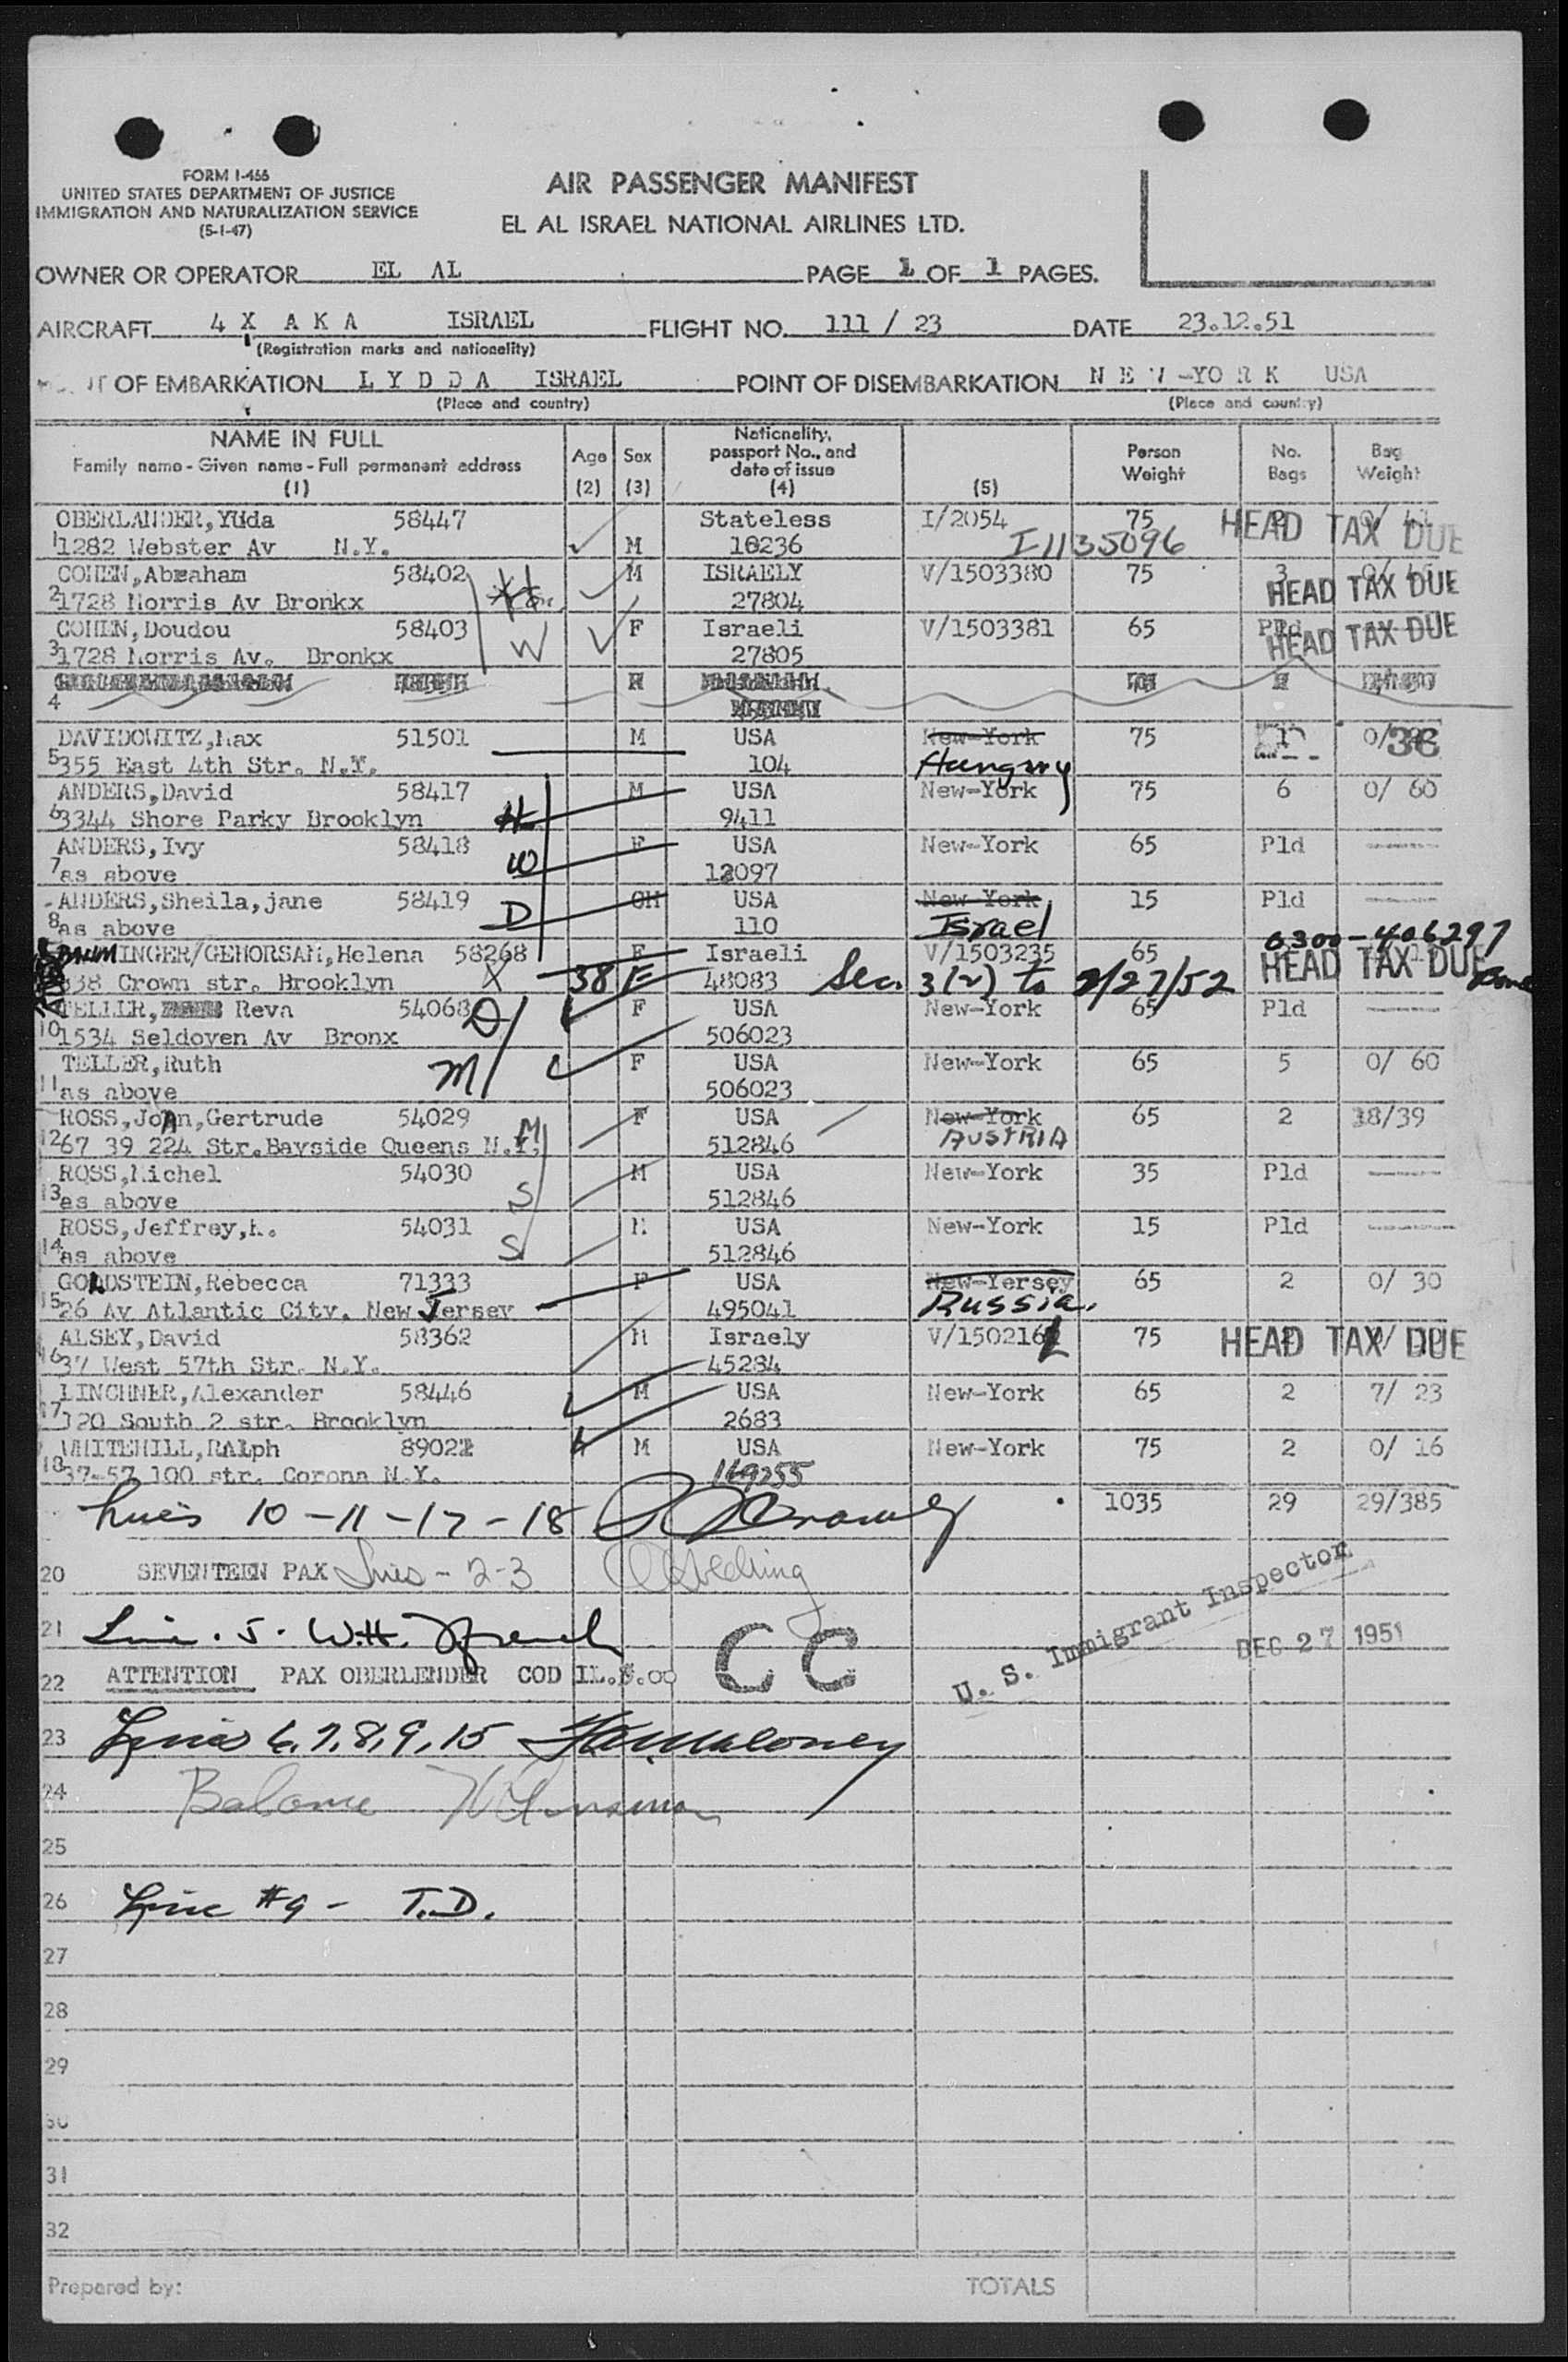 FORM I-466
UNITED STATES DEPARTMENT OF JUSTICE
IMMIGRATION AND NATURALIZATION SERVICE
(5-1-47)
AIR PASSENGER MANIFEST
EL AL ISRAEL NATIONAL AIRLINES LTD.
OWNER OR OPERATOR EL AL PAGE 1 OF 1 PAGES.
AIRCRAFT 4 X A K A ISRAEL FLIGHT NO. 111 / 23 DATE 23.12.51
(Registration marks and nationality)
OF EMBARKATION L Y D D A ISRAEL POINT OF DISEMBARKATION N E W -YO R K USA
(Place and country) (Place and country)
NAME IN FULL Age Sex Nationality, passport No., and date of issue Person Weight No. Bags Bag Weight
Family name - Given name - Full permanent address
(1) (2) (3) (4) (5)
OBERLANDER, Yuda 58447 Stateless I/2054 75 HEAD TAX DUE
1 1282 Webster Av N.Y. M 10236 I1135096
COHEN, Abraham 58402 M ISRAELY V/1503380 75 3
2 1728 Morris Av Bronkx 27804 HEAD TAX DUE
COHEN, Doudou 58403 W F Israeli V/1503381 65
3 1728 Morris Av. Bronkx 27805 HEAD TAX DUE
4
DAVIDOWITZ, Max 51501 M USA New-York 75 0/38
5 355 East 4th Str. N.Y. 104 Hungary
ANDERS, David 58417 M USA New-York 75 6 0/ 60
6 3344 Shore Parky Brooklyn H 9411
ANDERS, Ivy 58418 F USA New-York 65 Pld
7 as above W 12097
ANDERS, Sheila, jane 58419 CH USA New-York 15 Pld
8 as above D 110 Israel
0300-406297
INGER/GEHORSAM, Helena 58268 F Israeli V/1503235 65 HEAD TAX DUE
838 Crown str. Brooklyn X 38 F 48083 Sec. 3(2) to 2/27/52
TELLER, Reva 54068 D F USA New-York 65 Pld
10 1534 Seldoven Av Bronx 506023
TELLER, Ruth M F USA New-York 65 5 0/ 60
11 as above 506023
ROSS, Joan, Gertrude 54029 F USA New-York 65 2 18/39
12 67 39 224 Str. Bayside Queens N.Y. M 512846 AUSTRIA
ROSS, Michel 54030 M USA New-York 35 Pld
13 as above S 512846
ROSS, Jeffrey, 54031 M USA New-York 15 Pld
14 as above S 512846
GOLDSTEIN, Rebecca 71333 F USA New-Yersey 65 2 0/ 30
15 26 Av Atlantic City. New Jersey 495041 Russia.
ALSEY, David 58362 M Israely V/1502161 75 HEAD TAX DUE
16 37 West 57th Str. N.Y. 45284
LINCHNER, Alexander 58446 M USA New-York 65 2 7/ 23
17 120 South 2 str. Brooklyn 2683
WHITEHILL, RAlph 89021 M USA New-York 75 2 0/ 16
18 37-57 100 str. Corona N.Y. 169255
10-11-17-18 1035 29 29/385
20 SEVENTEEN PAX Lines - 2-3
21 Line. 5. W.H. French
U. S. Immigrant Inspector
DEC 27 1951
22 ATTENTION PAX OBERLENDER COD IL. .00 CC
23 Lines 6,7,8,9,15 Maloney
24 Balance
25
26 Line #9 - T.D.
27
28
29
30
31
32
Prepared by: TOTALS